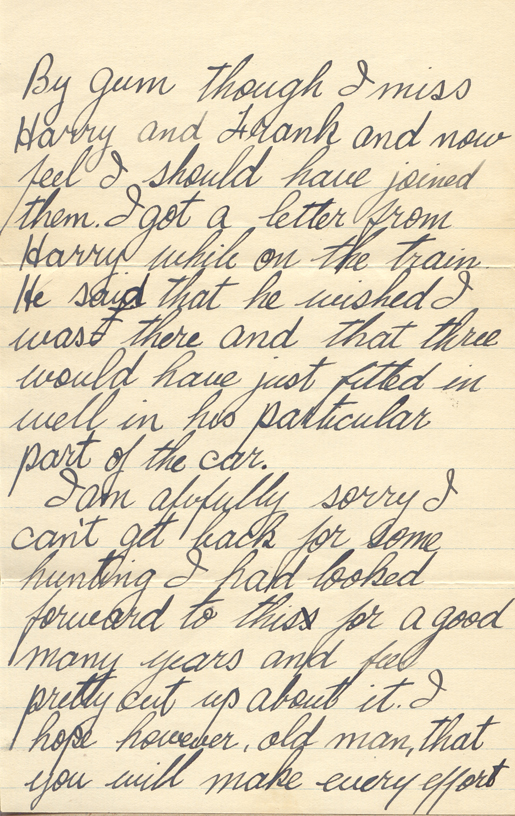 By gum though I miss
Harry and Frank and now
feel I should have joined
them. I got a letter from
Harry while on the train.
He said that he wished I
was there and that three
would have just fitted in
well in his particular
part of the car.
I am awfully sorry I
can't get back for some
hunting I had looked
forward to this for a good
many years and feel
pretty cut up about it. I
hope however, old man, that
you will make every effort